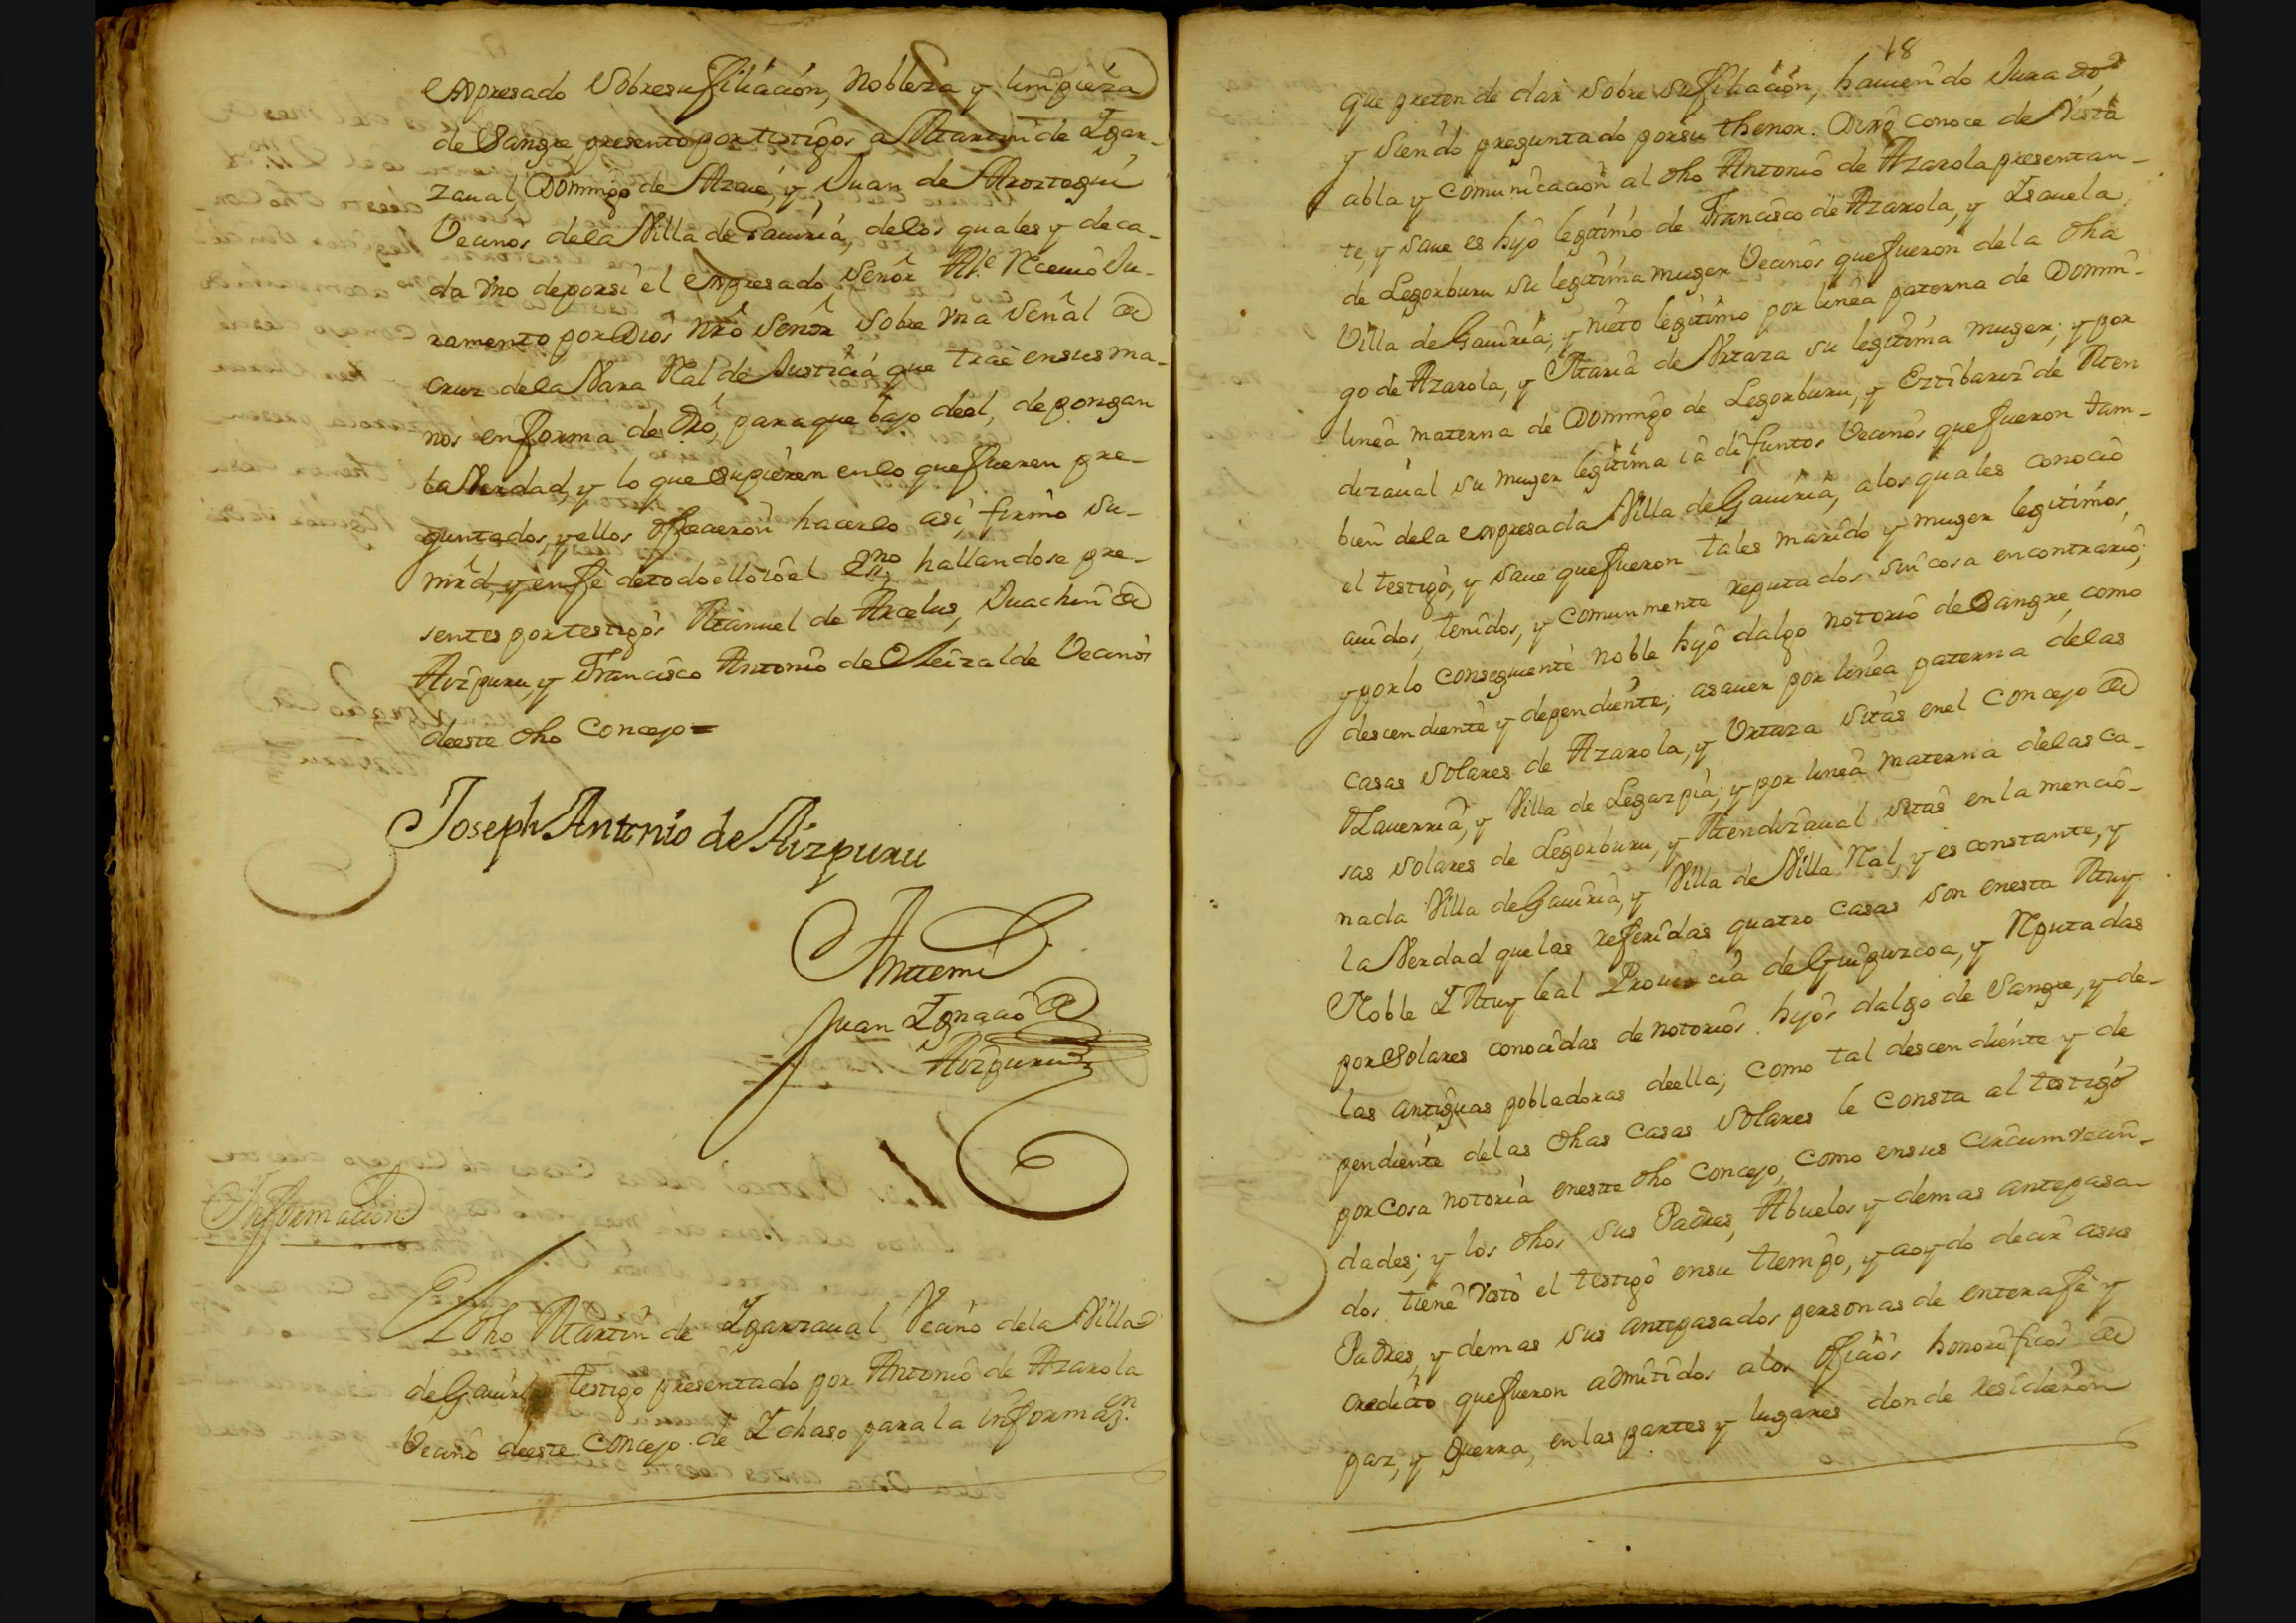 expresado Sobre su filiación, Nobleza y limpieza
de Sangre, presento por testigos a Martin de Igar-
zaual Domingo de Azcue, y Juan de Aroztegui
Vecinos dela Villa de Gauiria, delos quales y de ca-
da Vno deporsi el expresado Señor Alc. Reciuio Ju-
ramento por Dios nrô Señor Sobre Vna Señal de
Cruz dela Vara Rál de Justicia que trae ensus ma-
nos en forma de Dro, paraque bajo deel, depongan
la Verdad, y lo que Supieren enlo que fueren pre-
guntados, y ellos ofrecieron hacerlo asi, firmó Su-
mrd, y enfeè detodo ello io el Essno, hallandose pre-
sentes por testigos Manuel de Arcelus, Juachin de
Aizpuru, y Francisco Antonio de Oleizalde Vecinos
deeste dho Concejo =
Joseph Antonio de Aizpuru
Antemi
Juan Ignacio de
Aizpuru
Informacion
El dho Martin de Igarzaual Vecino dela Villa
de Gauiria testigo presentado por Antonio de Azarola
Vecino deeste Concejo de Ichaso para la informaon.
18
que pretende dar sobre su filiación, hauiendo Jurado
y siendo preguntado por su thenor. Dixo conoce de Vista
abla y comunicacion al dho Antonio de Azarola presentan-
te, y saue es hijo legitimo de Francisco de Azarola, y Isauela
de Legorburu su legitima muger Vecinos que fueron dela dha
Villa de Gauiria; y nieto legitimo por linea paterna de Domin-
go de Azarola, y Maria de Vrtaza su legitima muger; y por
linea materna de Domingo de Legorburu, y Eztibariz de Men
dizaual su muger legitima ia difuntos Vecinos que fueron tam-
bien dela expresada Villa de Gauiria, alos quales conocio
el testigo, y saue que fueron tales marido y muger legitimos,
auidos, tenidos, y comunmente reputados sin cosa en contrario;
y por lo consequente noble hijo dalgo notorio de Sangre, como
descendiente y dependiente, asauer por linea paterna delas
casas solares de Azarola, y Vrtaza sitas enel Concejo de
Ezauerria, y Villa de Legazpia; y por linea materna delas ca-
sas solares de Legorburu, y Mendizaual sitas en la mencio-
nada Villa de Gauiria, y Villa de Villa Rál, y es constante, y
la Verdad quelas referidas quatro casas son enesta Muy
Noble I Muy leal Prouincia de Guipuzcoa, y Reputadas
por Solares conocidas de notorios hijos dalgo de Sangre, y de-
las antiguas pobladoras deella; como tal descendiente y de
pendiente delas dhas casas solares le consta al testigo
por Cosa notoria eneste dho Concejo, como ensus circumvecin-
dades; y los dhos sus Padres, Abuelos y demas antepasa-
dos tiene visto el testigo ensu tiempo, y aoydo decir asus
Padres, y demas sus antepasados personas de entera feè y
credito que fueron admitidos alos oficios honorificos de
paz, y guerra, en las partes y lugares donde residieron